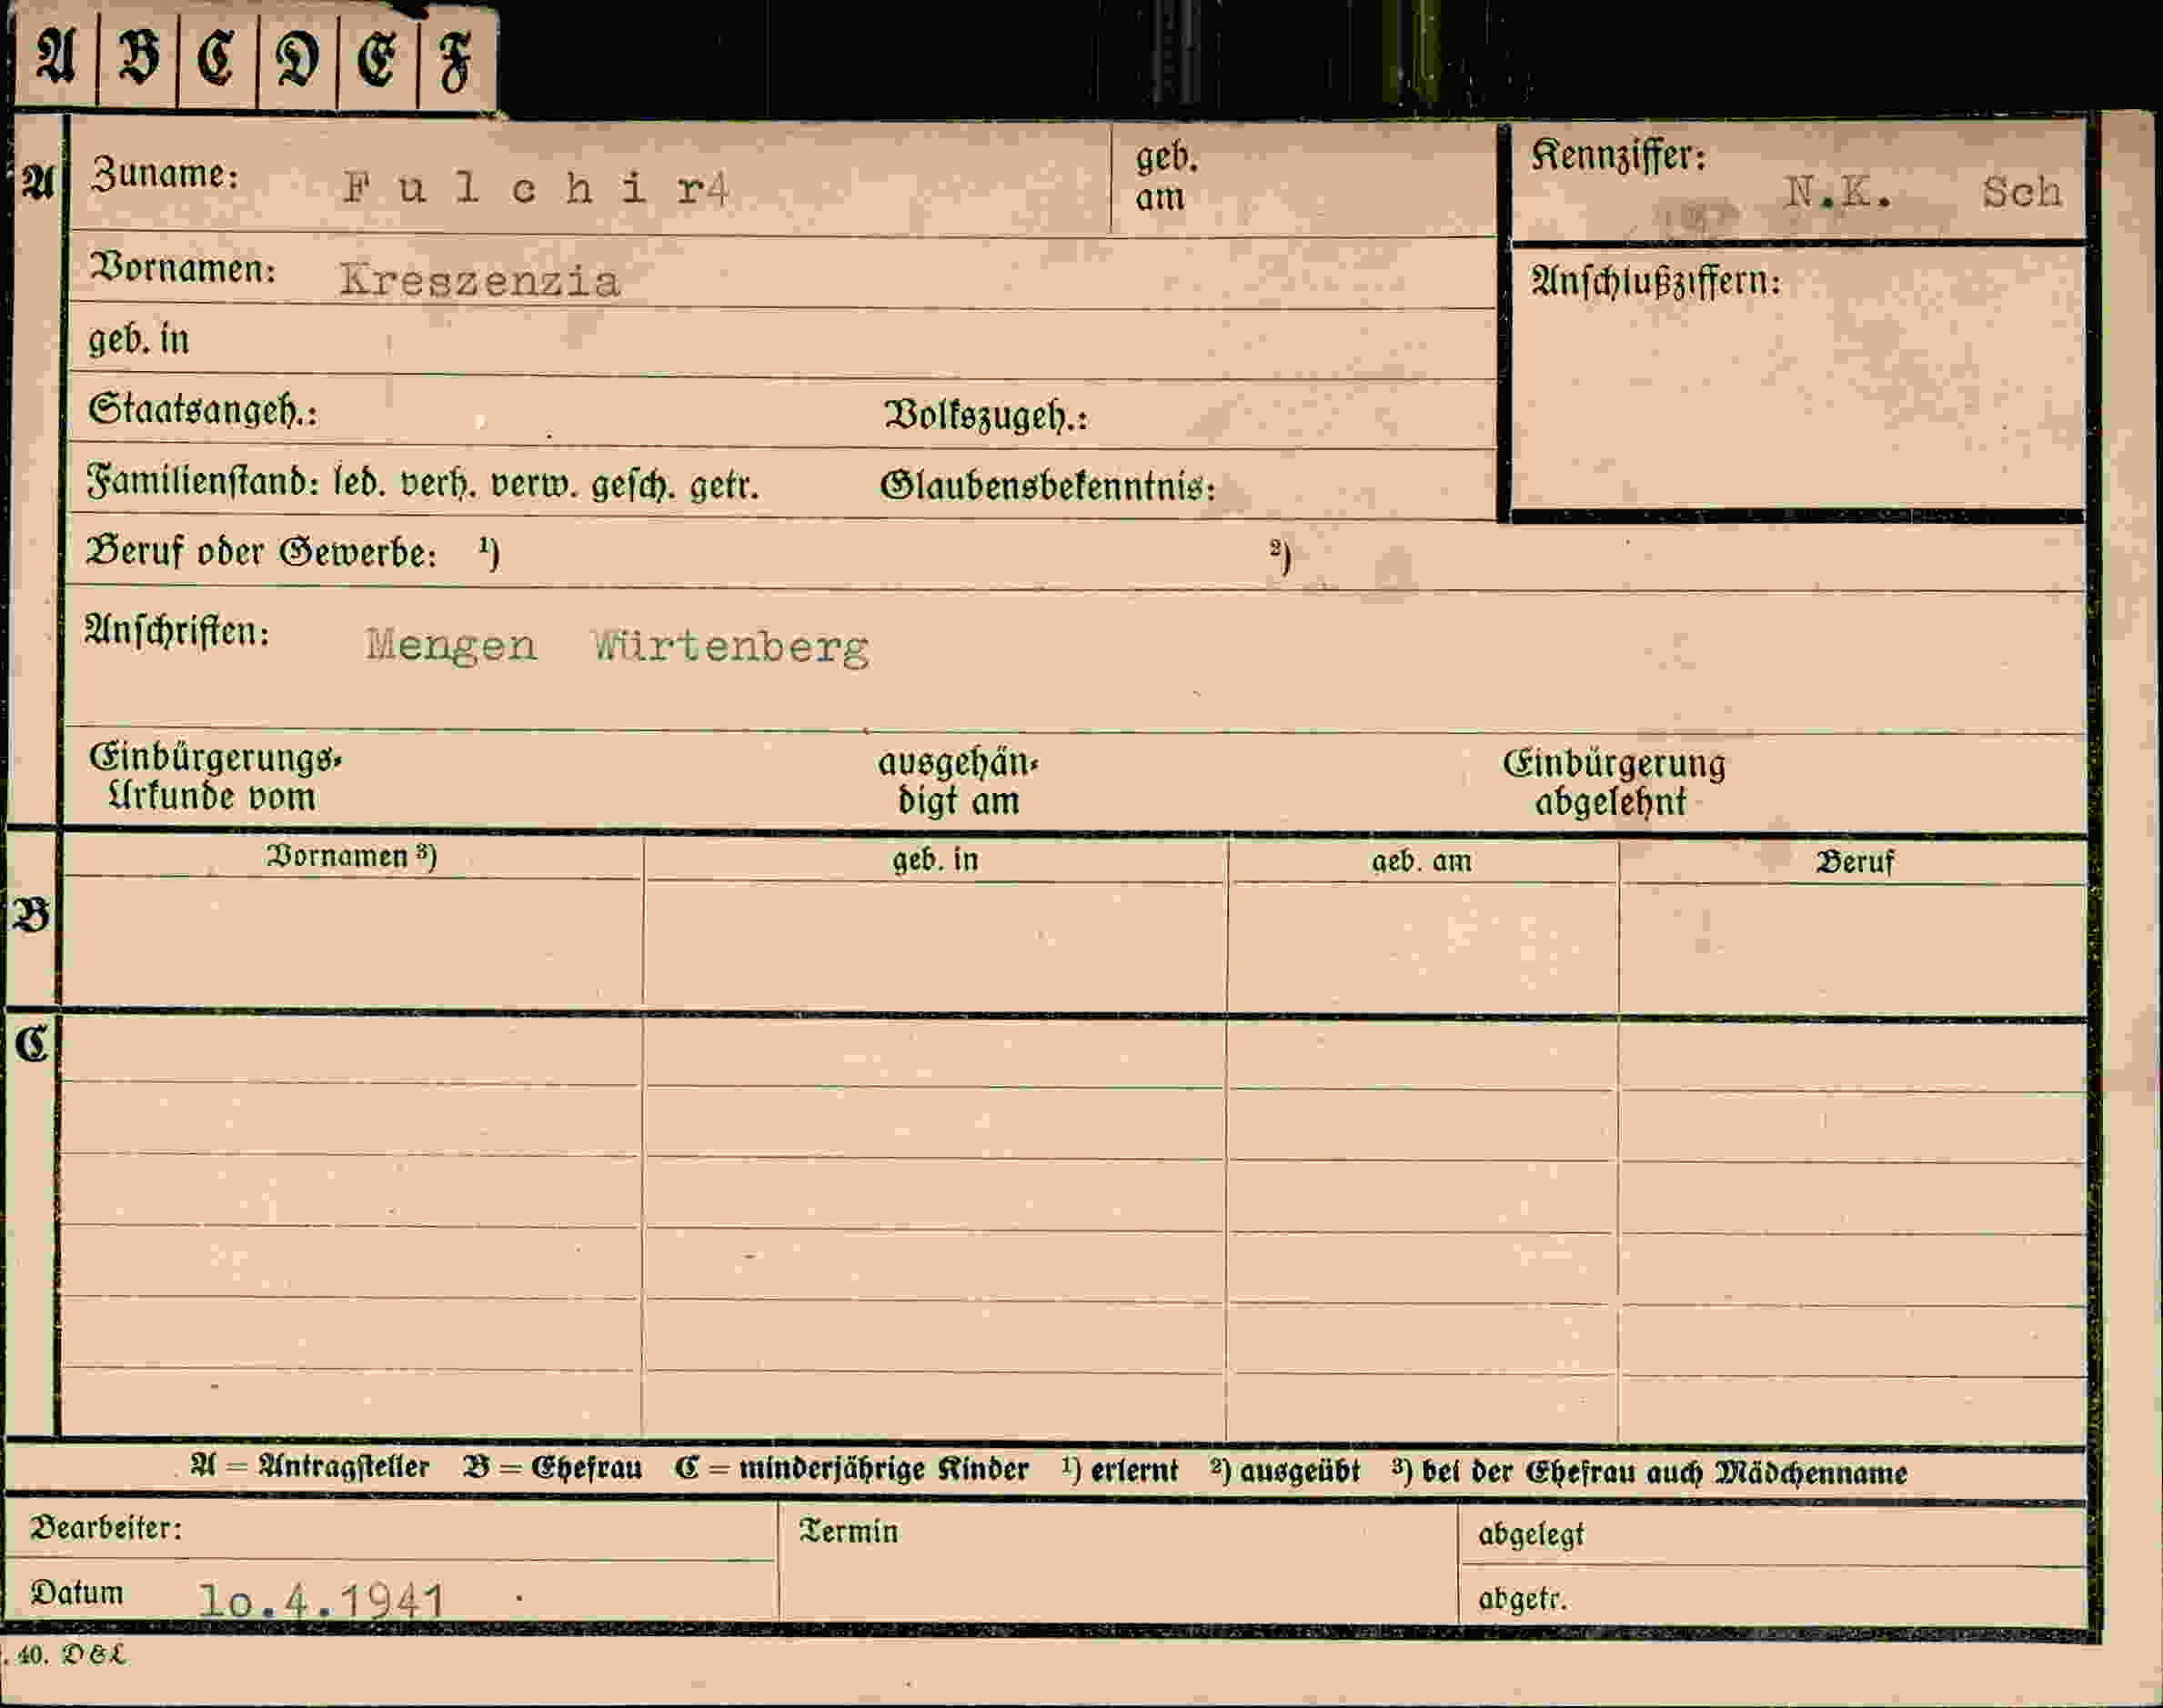 A B C D E F
A Zuname: F u l c h i r4 geb. am Kennziffer: N.K. Sch
Vornamen: Kreszenzia Anschlußziffern:
geb. in
Staatsangeh.: Volkszugeh.:
Familienstand: led. verh. verw. gesch. getr. Glaubensbekenntnis:
Beruf oder Gewerbe: ¹) ²)
Anschriften: Mengen Würtenberg
Einbürgerungs- ausgehän- Einbürgerung
Urkunde vom digt am abgelehnt
Vornamen ³) geb. in geb. am Beruf
B
C
A = Antragsteller B = Ehefrau C = minderjährige Kinder ¹) erlernt ²) ausgeübt ³) bei der Ehefrau auch Mädchenname
Bearbeiter: Termin abgelegt
Datum lo.4.1941 abgetr.
. 40. D&L